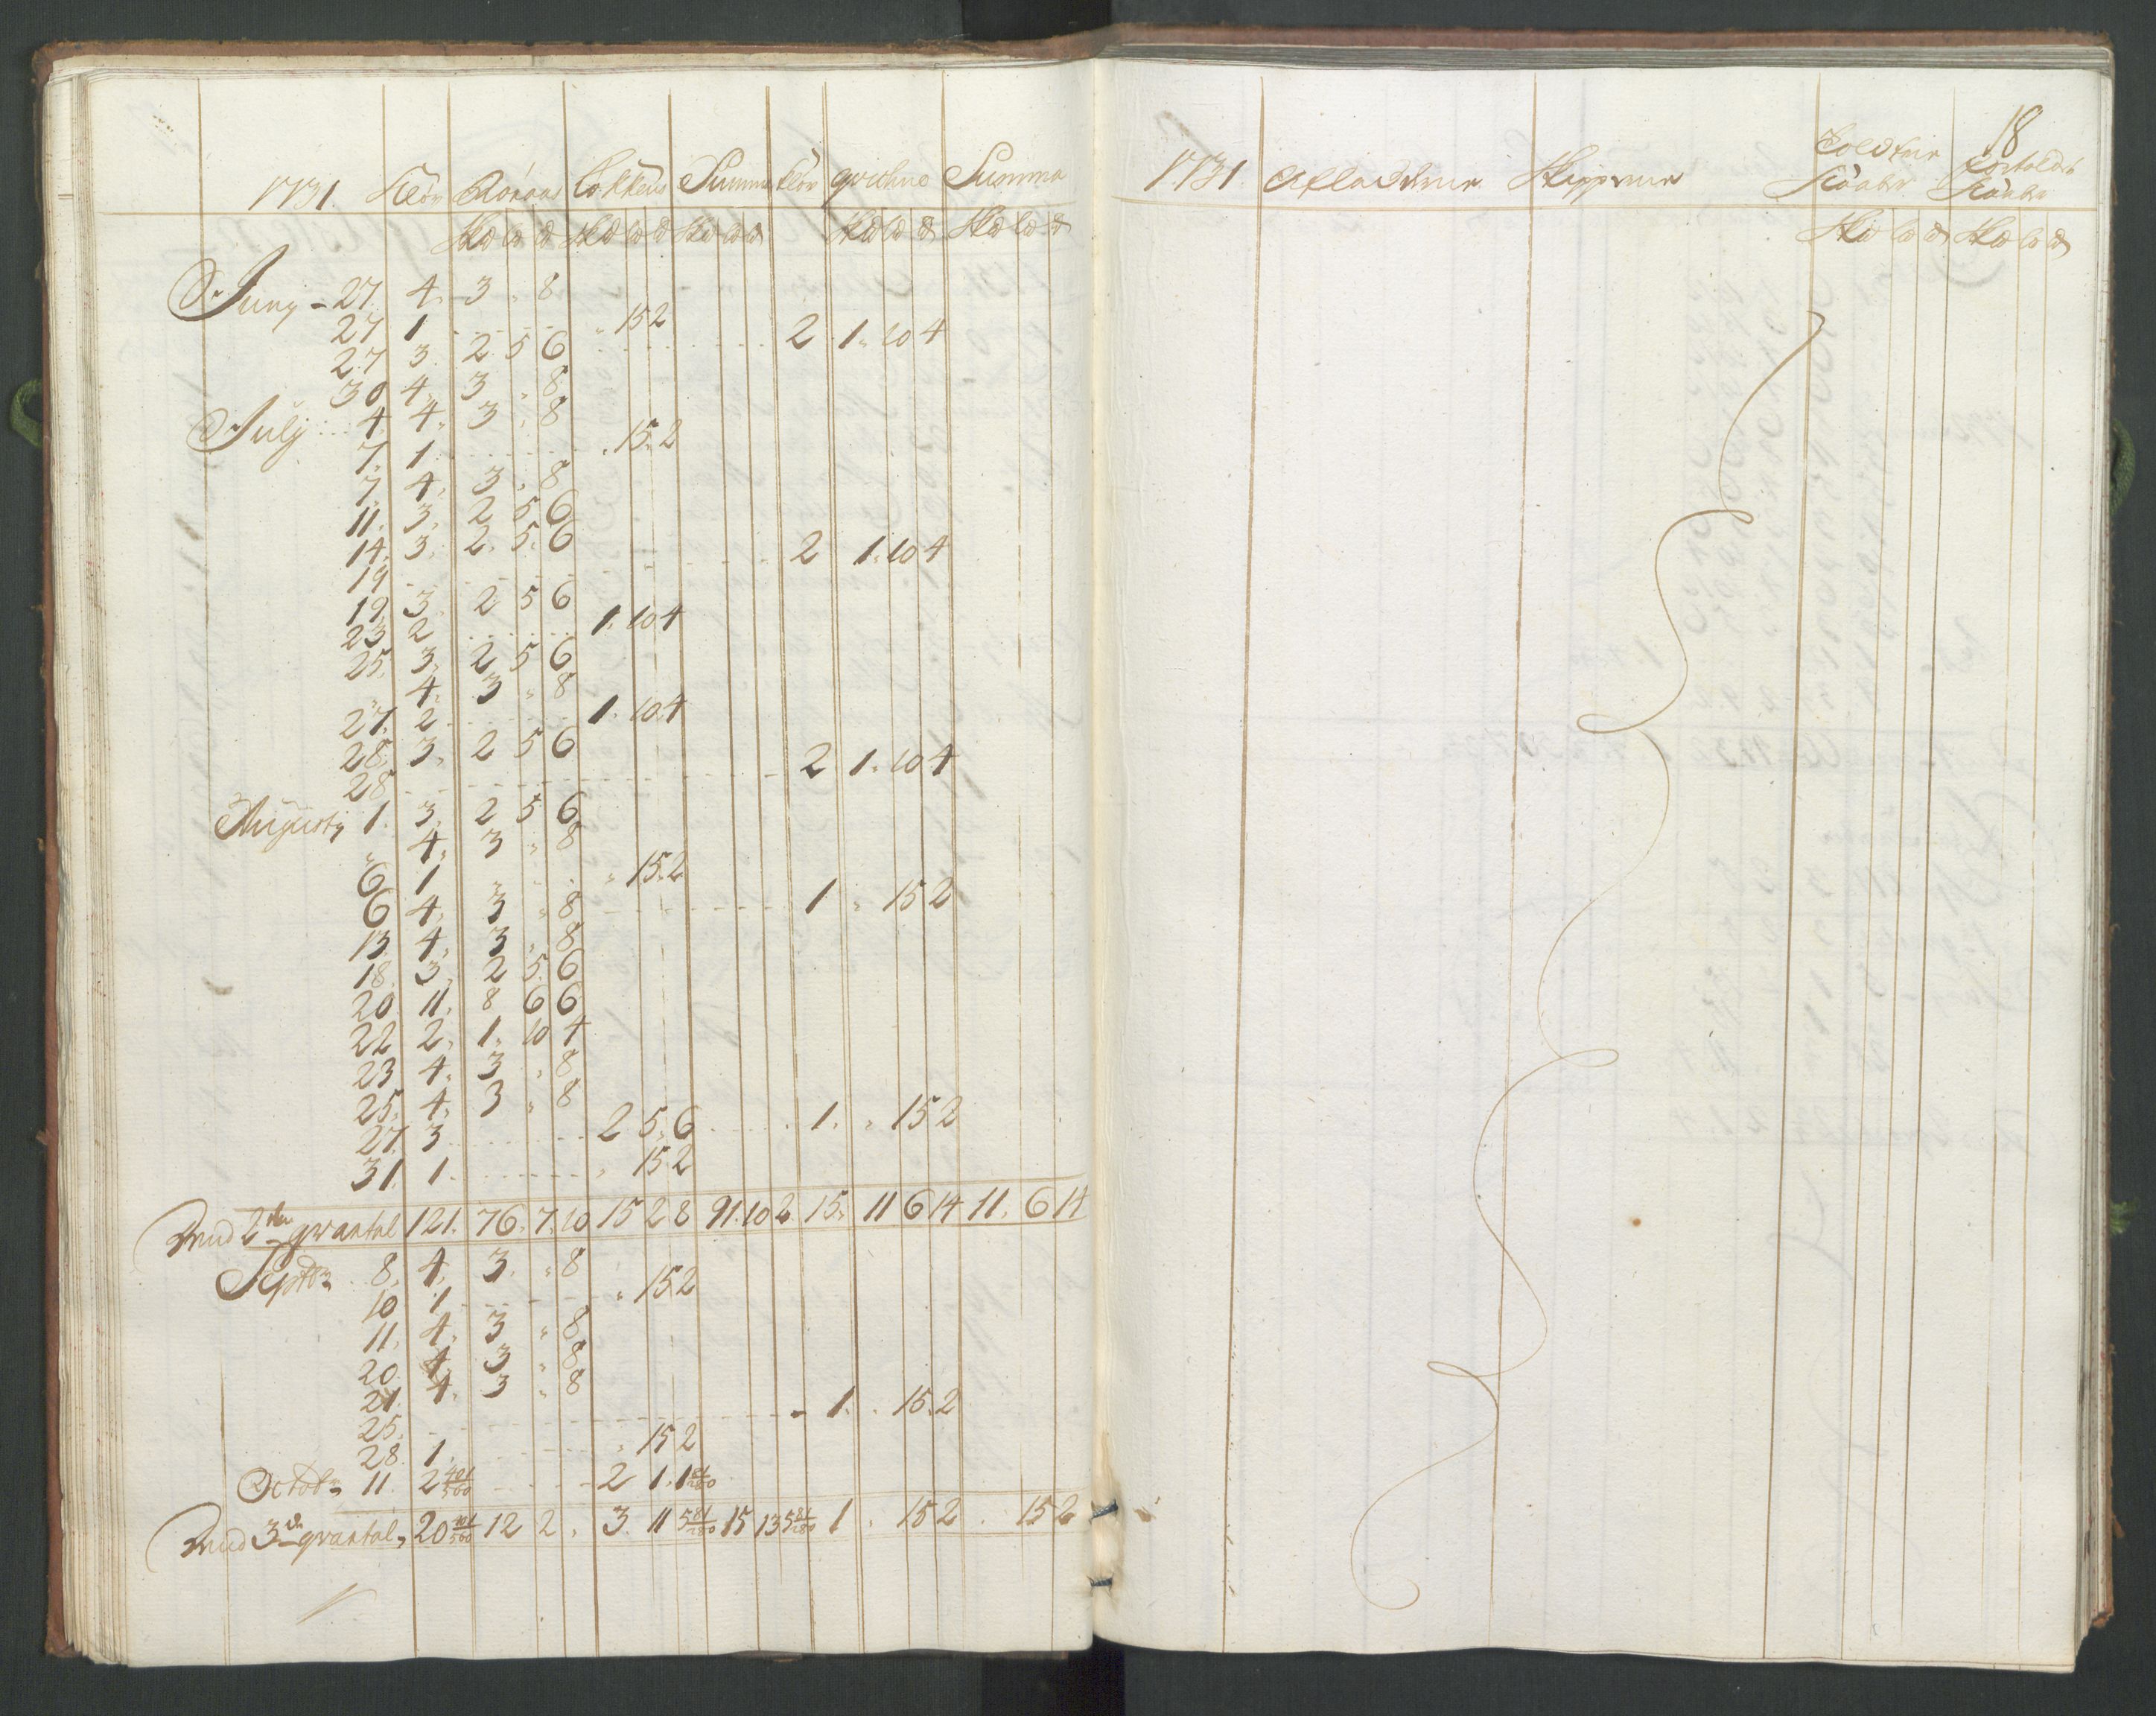 1731. Kiør Røraas Løkkens Summa kiør qvichne Summa
Sk℔ L℔ ℔ Sk℔ L℔ ℔ Sk℔ L℔ ℔ Sk℔ L℔ ℔ Sk℔ L℔ ℔
Junÿ - 27. 4. 3 „ 8
27 1 „ 15 2
27 3. 2. 5 6 2 1. 10 4
30 4. 3 „ 8
Julÿ 4. 4. 3 „ 8
7. 1. „ 15. 2
7. 4. 3 „ 8
11. 3. 2 5 6
14. 3. 2. 5. 6
19 2 1. 10 4
19 3. 2 5 6
23 2 1. 10 4
25. 3. 2 5 6
„ 4. 3 „ 8
27. 2 1. 10 4
28. 3. 2 5 6
28 2 1. 10 4
Augustÿ 1. 3. 2 5 6
„ 4. 3 „ 8
6 1 „ 15. 2
6 4. 3 „ 8 1 „ 15 2
13. 4. 3 „ 8
18. 3. 2 5. 6
20. 11. 8 6 6
22 2. 1. 10 4
23 4. 3 „ 8
25. 4. 3 „ 8
27. 3 2 5. 6 1. „ 15 2
31. 1. „ 15. 2
2den qvartal 121. 76. 7. 10 15 2 8 91. 10 2 15. 11 6 14 11. 6 14
Septbr 8. 4. 3. „ 8
10 1 „ 15 2
11. 4. 3 „ 8
20. 4. 3 „ 8
21. 4. 3 „ 8
25. 1. „ 15. 2
28. 1. „ 15 2
Octobr 11. 2 2 1. 1
3de qvartal 20 12 2 „ 3. 11 5 15 13 5 1 „ 15 2 „ 15 2
18
1731 Afladerne Skipperne Toldfrie Kåber Fortoldet Kåber
Sk℔ L℔ ℔ Sk℔ L℔ ℔